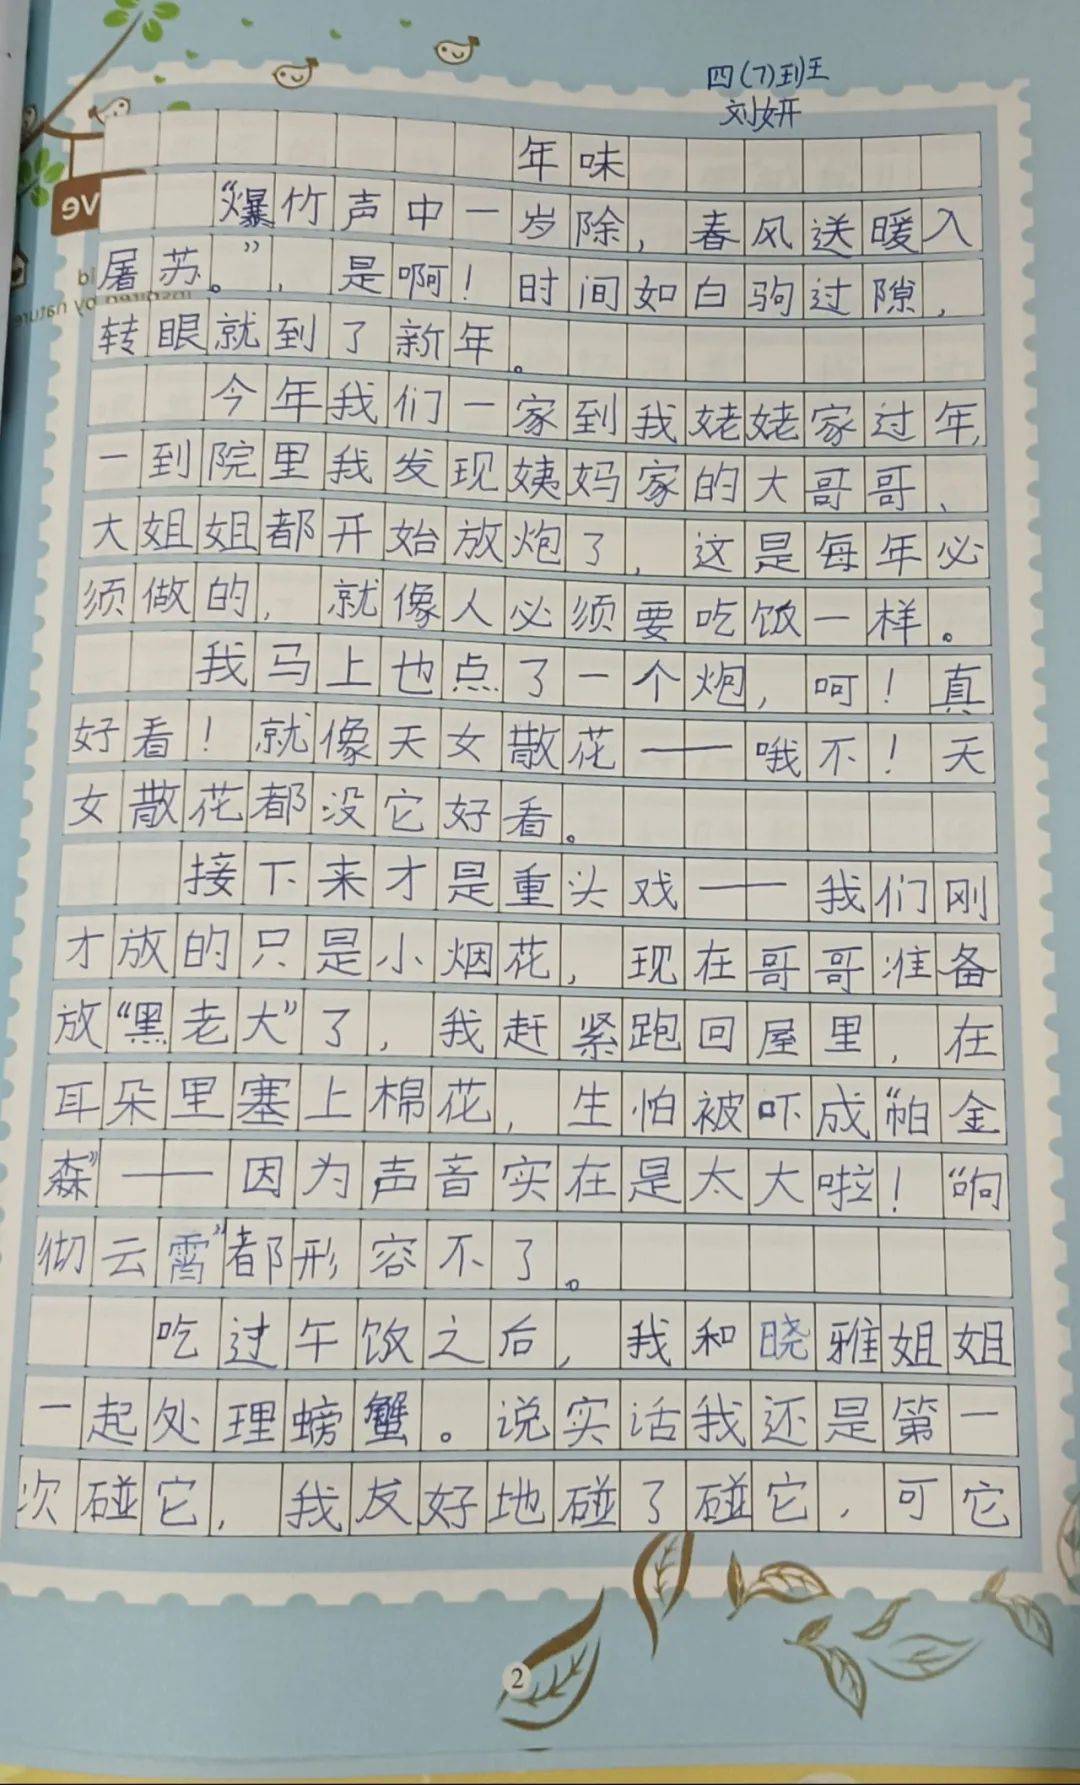 四(7)到王
刘妍
年味
“爆竹声中一岁除,春风送暖入
屠苏。”,是啊!时间如白驹过隙,
转眼就到了新年。
今年我们一家到我姥姥家过年,
一到院里我发现姨妈家的大哥哥、
大姐姐都开始放炮了,这是每年必
须做的,就像人必须要吃饭一样。
我马上也点了一个炮,呵!真
好看!就像天女散花——哦不!天
女散花都没它好看。
接下来才是重头戏——我们刚
才放的只是小烟花,现在哥哥准备
放“黑老大”了,我赶紧跑回屋里,在
耳朵里塞上棉花,生怕被吓成“帕金
森”——因为声音实在是太大啦!“响
彻云霄”都形容不了。
吃过午饭之后,我和晓雅姐姐
一起处理螃蟹。说实话我还是第一
次碰它,我友好地碰了碰它,可它
2